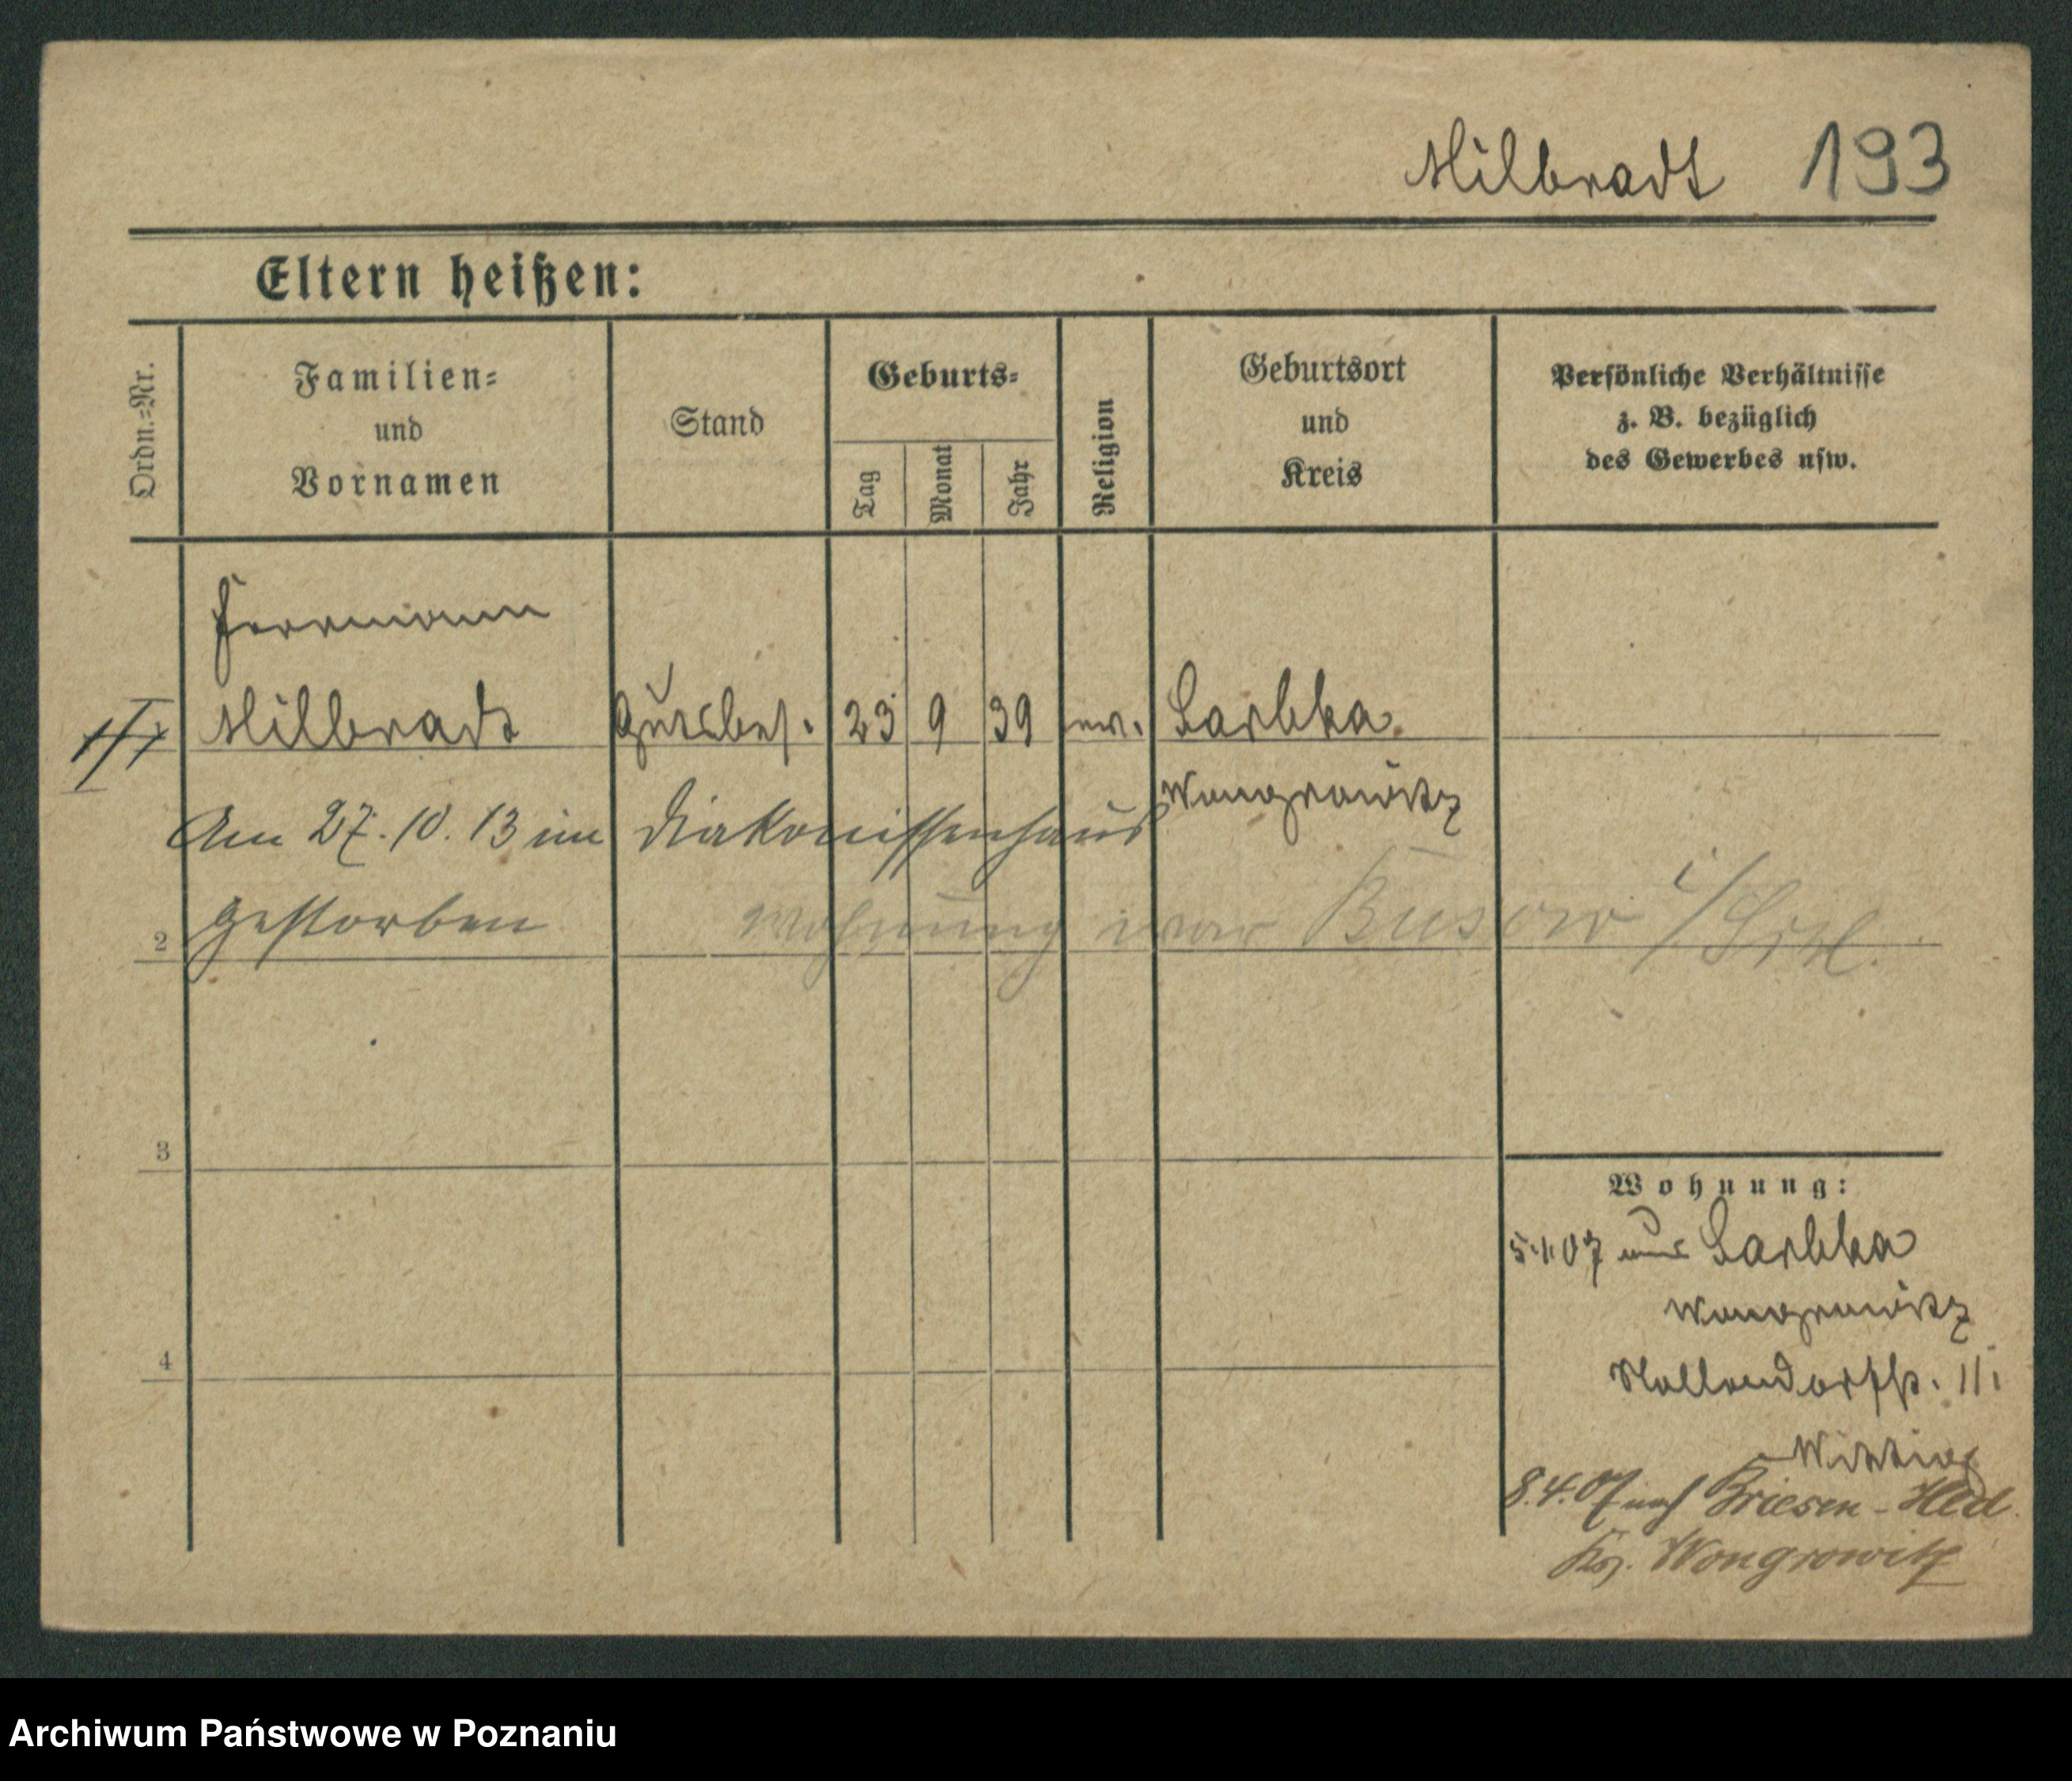 Milbradt 193
Eltern heißen:
Ordn.-Nr.
Familien-
und
Vornamen
Stand
Geburts-
Tag
Monat
Jahr
Religion
Geburtsort
und
Kreis
Persönliche Verhältnisse
z. B. bezüglich
des Gewerbes usw.
Herrmann
Milbradt Gutsbes. 23 9 39 ev. Sarbka
Wongrowitz
Am 27.10.13 im Diakonissenhaus
2 gestorben Wohnung war
3
4
Wohnung:
5.1.07 aus Sarbka
Wongrowitz
Nollendorfstr.
8.4.07 nach Briesen-Hld.
Krs. Wongrowitz
Archiwum Państwowe w Poznaniu